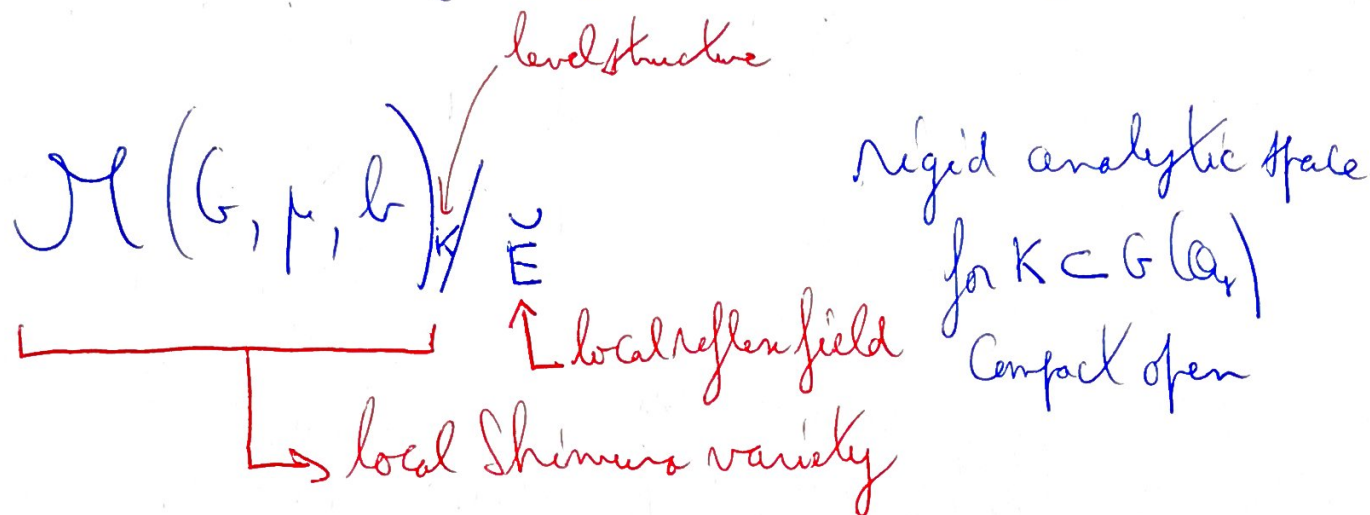 level structure
M(G, μ, b)_K / Ĕ
rigid analytic space
for K ⊂ G(Q_p)
compact open
local reflex field
local Shimura variety